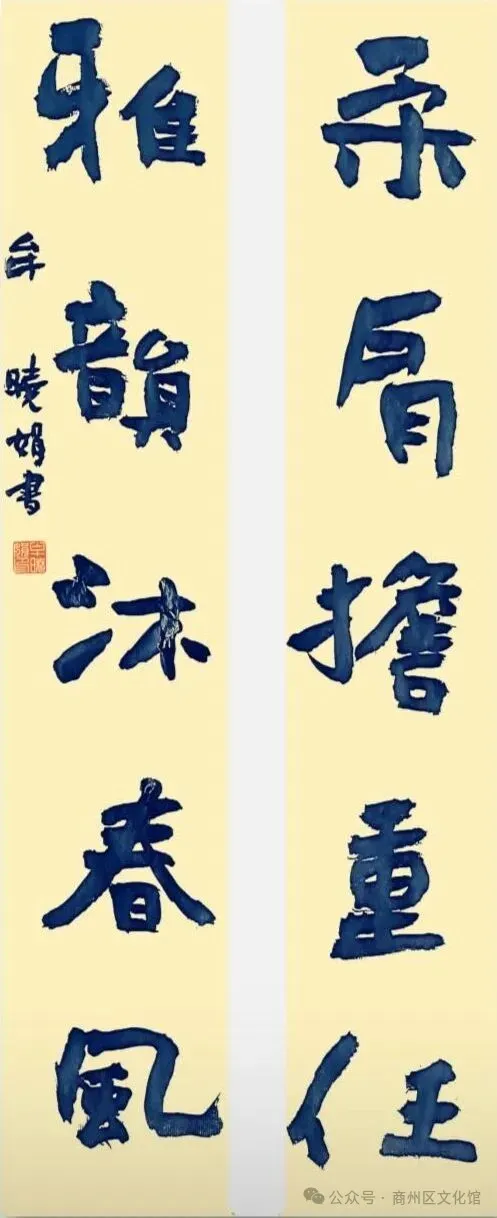 柔肩擔重任
雅韻沐春風
牟曉娟書
公众号·商州区文化馆